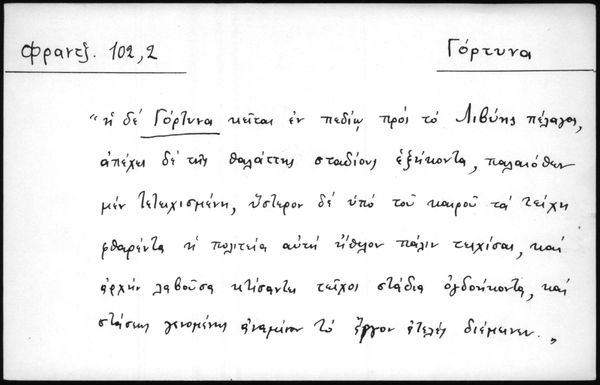 Φραντζ. 102,2
Γόρτυνα
"ἡ δέ Γόρτυνα κεῖται ἐν πεδίῳ πρός τό Λιβύης πέλαγος,
ἀπέχει δέ τῆς θαλάττης σταδίους ἑξήκοντα, παλαιόθεν
μέν τετειχισμένη, ὕστερον δέ ὑπό τοῦ καιροῦ τά τείχη
φθαρέντα ἡ πολιτεία αὐτή ἤθελον πάλιν τειχίσαι, καί
ἀρχήν λαβοῦσα κτίσαντες τεῖχος στάδια ὀγδοήκοντα, καί
στάσεως γενομένης ἀναμέσον τό ἔργον ἀτελές διέμεινεν."